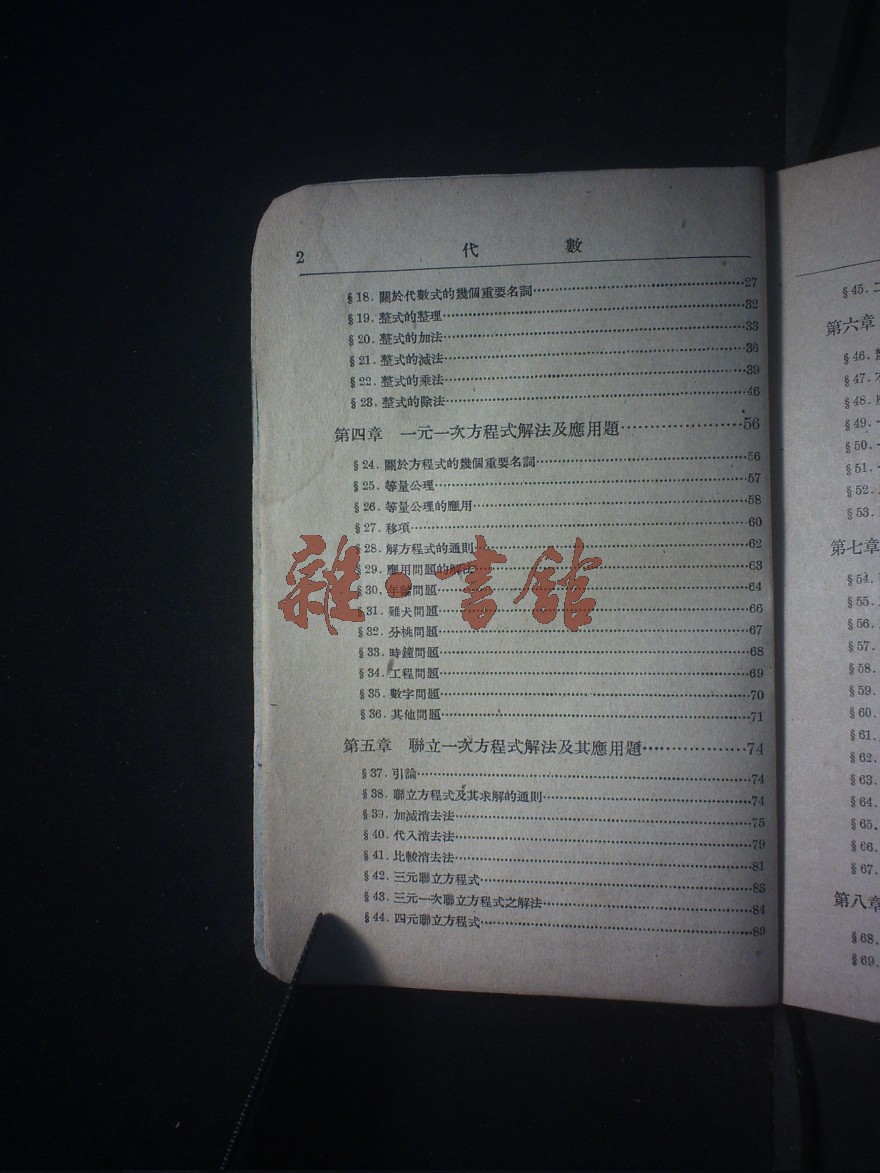 2 代 數
§18. 關於代數式的幾個重要名詞 27
§19. 整式的整理 32
§20. 整式的加法 33
§21. 整式的減法 36
§22. 整式的乘法 39
§23. 整式的除法 46
第四章 一元一次方程式解法及應用題 56
§24. 關於方程式的幾個重要名詞 56
§25. 等量公理 57
§26. 等量公理的應用 58
§27. 移項 60
§28. 解方程式的通則 62
§29. 應用問題的解法 63
§30. 年齡問題 64
§31. 雞犬問題 66
§32. 分桃問題 67
§33. 時鐘問題 68
§34. 工程問題 69
§35. 數字問題 70
§36. 其他問題 71
第五章 聯立一次方程式解法及其應用題 74
§37. 引論 74
§38. 聯立方程式及其求解的通則 74
§39. 加減消去法 75
§40. 代入消去法 79
§41. 比較消去法 81
§42. 三元聯立方程式 83
§43. 三元一次聯立方程式之解法 84
§44. 四元聯立方程式 89
雜·書館
§45. 二
第六章
§46.
§47.
§48.
§49.
§50.
§51.
§52.
§53.
第七章
§54.
§55.
§56.
§57.
§58.
§59.
§60.
§61.
§62.
§63.
§64.
§65.
§66.
§67.
第八章
§68.
§69.